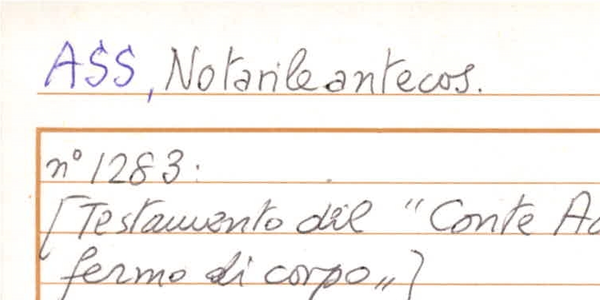 ASS, Notarile antecos.
n° 1283:
[Testamento del "Conte Ad
fermo di corpo„]